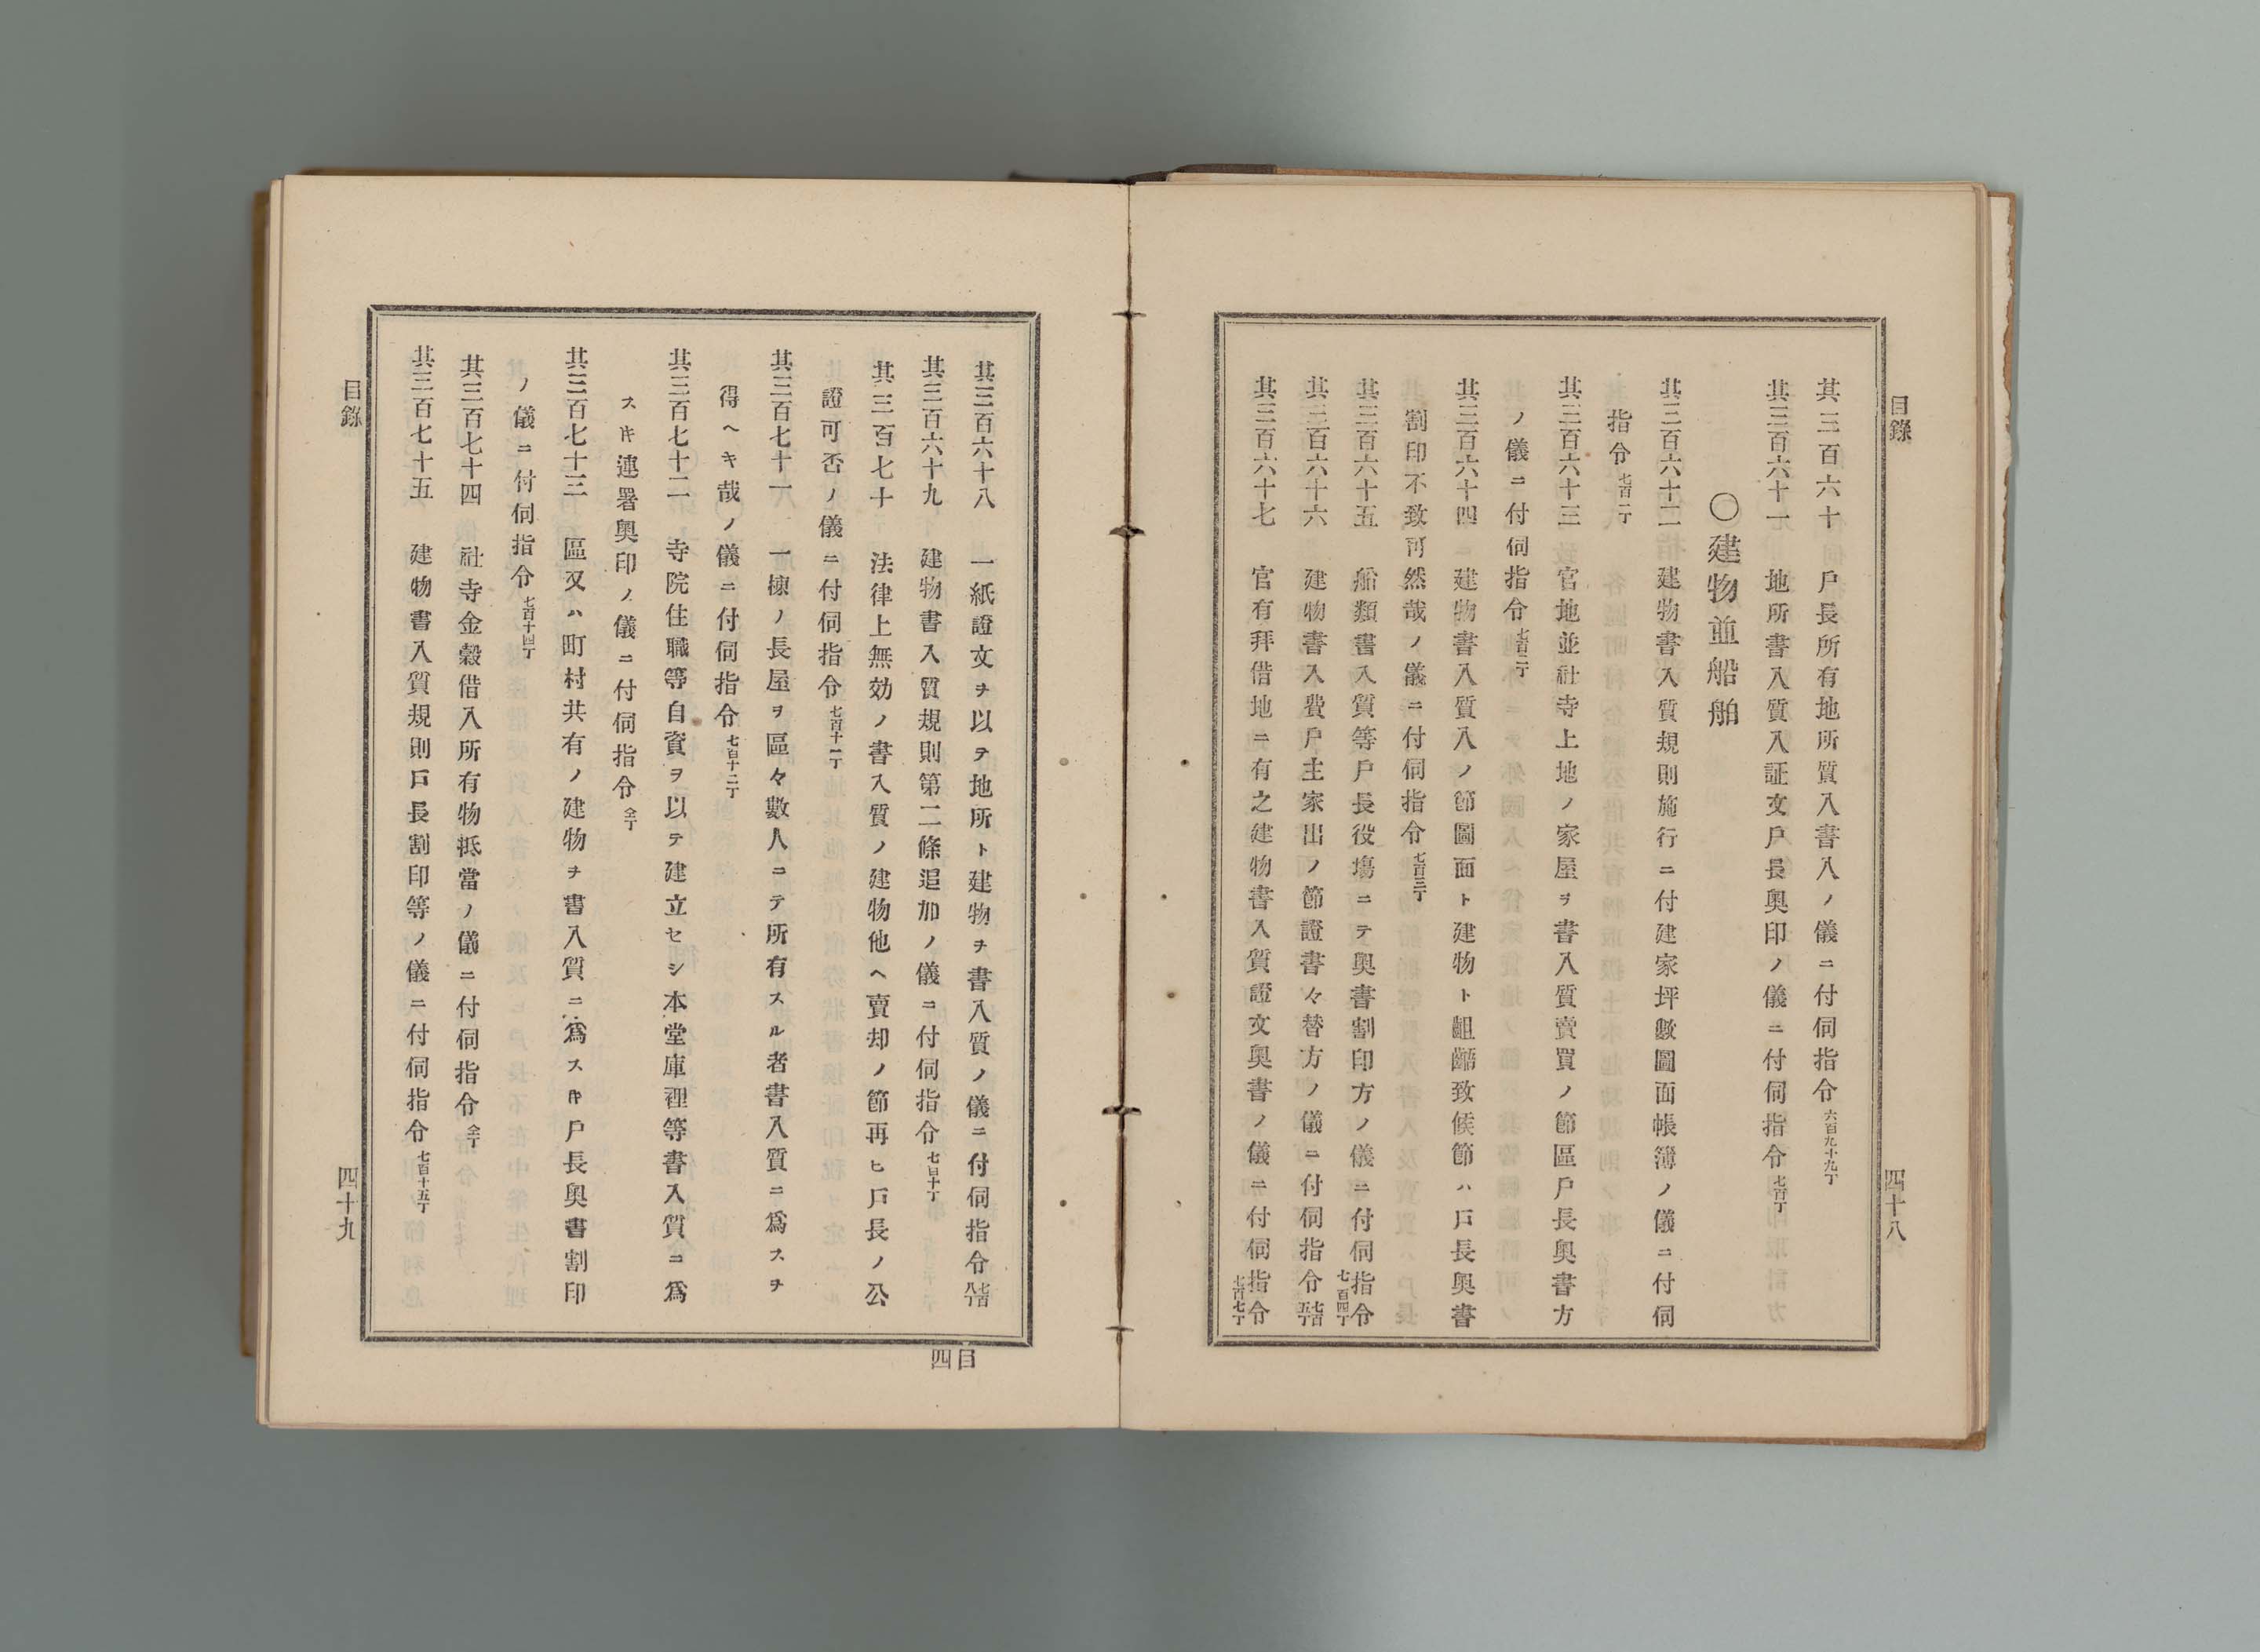 目錄
四十八
其三百六十　戶長所有地所質入書入ノ儀ニ付伺指令六百九十九丁
其三百六十一　地所書入質入証文戶長奧印ノ儀ニ付伺指令七百丁
〇建物並船舶
其三百六十二　建物書入質規則施行ニ付建家坪數圖面帳簿ノ儀ニ付伺
指令七百一丁
其三百六十三　官地並社寺上地ノ家屋ヲ書入質賣買ノ節區戶長奧書方
ノ儀ニ付伺指令七百二丁
其三百六十四　建物書入質入ノ節圖面ト建物ト齟齬致候節ハ戶長奧書
割印不致可然哉ノ儀ニ付伺指令七百三丁
其三百六十五　船類書入質等戶長役塲ニテ奧書割印方ノ儀ニ付伺指令七百四丁
其三百六十六　建物書入費戶主家出ノ節證書々替方ノ儀ニ付伺指令七百五丁
其三百六十七　官有拜借地ニ有之建物書入質證文奧書ノ儀ニ付伺指令七百七丁
其三百六十八　一紙證文ヲ以テ地所ト建物ヲ書入質ノ儀ニ付伺指令七百八丁
其三百六十九　建物書入質規則第二條追加ノ儀ニ付伺指令七百十丁
其三百七十　法律上無効ノ書入質ノ建物他ヘ賣却ノ節再ヒ戶長ノ公
證可否ノ儀ニ付伺指令七百十一丁
其三百七十一　一棟ノ長屋ヲ區々數人ニテ所有スル者書入質ニ爲スヲ
得ヘキ哉ノ儀ニ付伺指令七百十二丁
其三百七十二　寺院住職等自資ヲ以テ建立セシ本堂庫裡等書入質ニ爲
スキ連署奧印ノ儀ニ付伺指令仝丁
其三百七十三　區又ハ町村共有ノ建物ヲ書入質ニ爲スキ戶長奧書割印
ノ儀ニ付伺指令七百十四丁
其三百七十四　社寺金穀借入所有物抵當ノ儀ニ付伺指令仝丁
其三百七十五　建物書入質規則戶長割印等ノ儀ニ付伺指令七百十五丁
目錄
四十九
目四